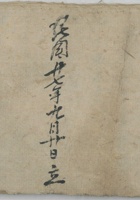 民国廿七年九月廿日立